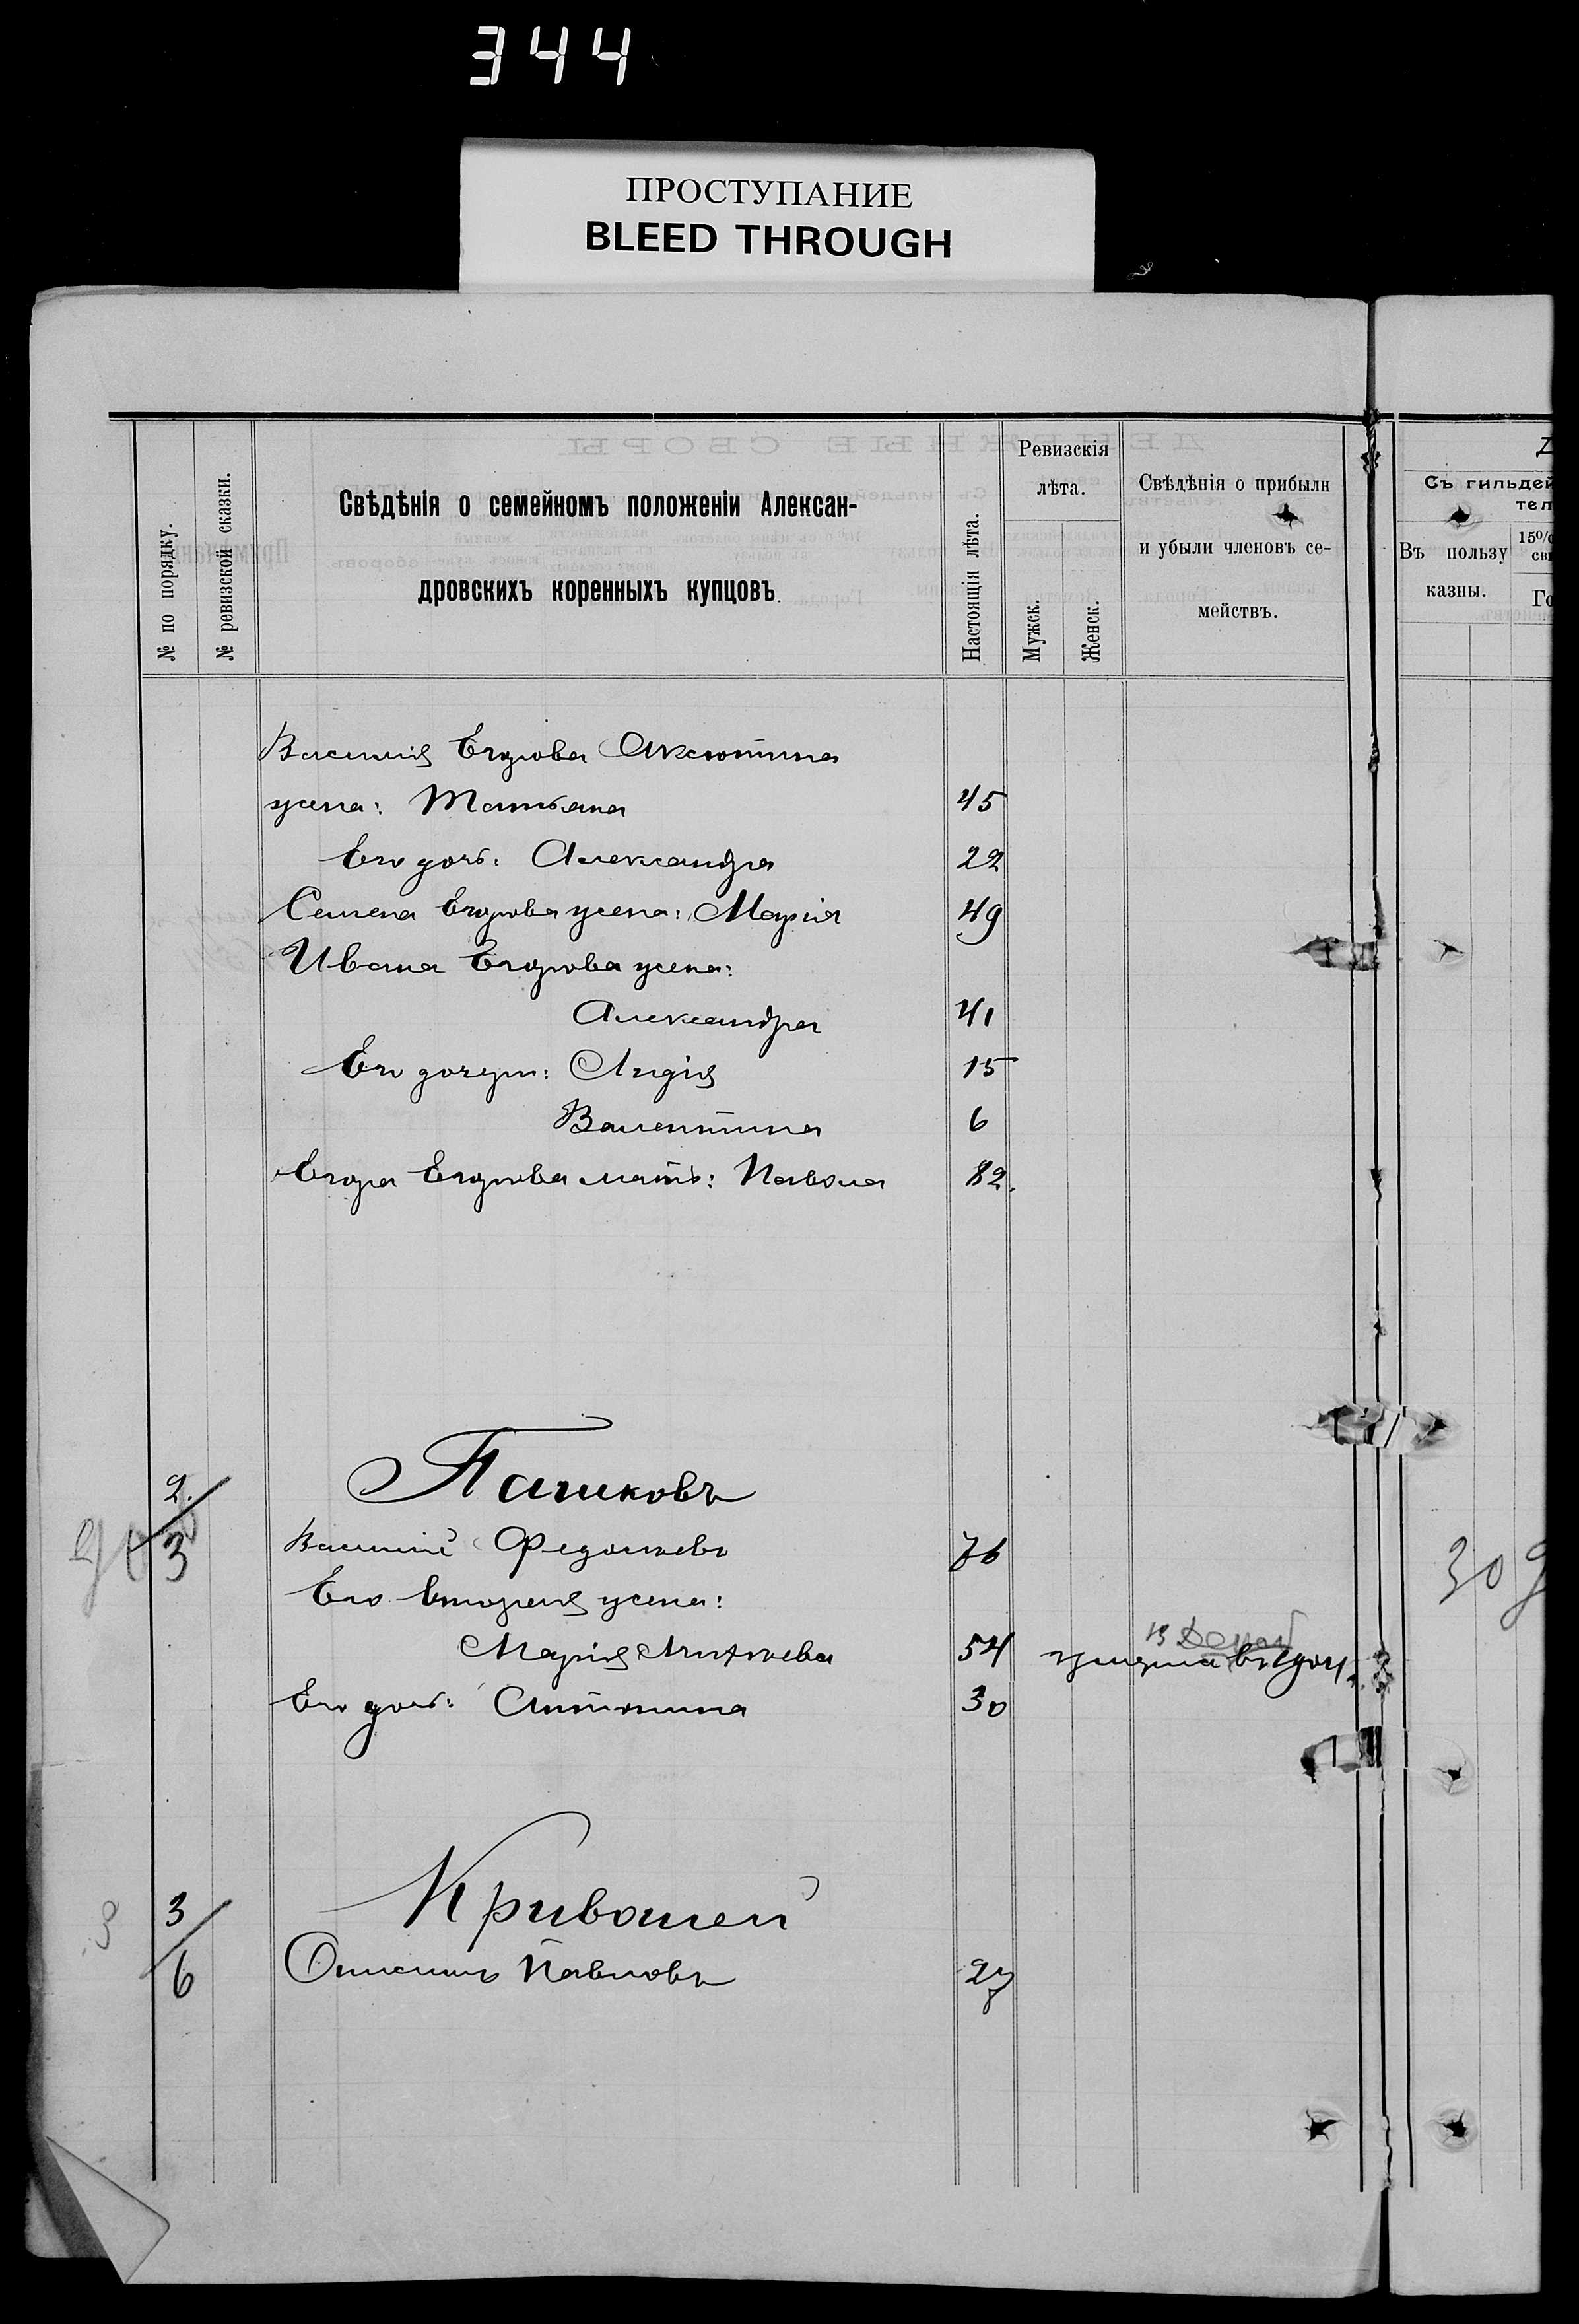 344
ПРОСТУПАНИЕ
BLEED THROUGH
№ по порядку.
№ ревизской сказки.
Свѣдѣнія о семейномъ положеніи Алексан-
дровскихъ коренныхъ купцовъ.
Настоящія лѣта.
Ревизскія
лѣта.
Мужск.
Женск.
Свѣдѣнія о прибыли
и убыли членовъ се-
мействъ.
Съ гильдей
тел
Въ пользу
казны.
15%
Василія Егорова Аксютина
жена: Татьяна 45
Его дочь: Александра 22
Семена Егорова жена: Марія 49
Ивана Егорова жена:
Александра 41
Его дочери: Лидія 15
Валентина 6
Егора Егорова мать: Павла 82.
2. Пашковъ
3 Василій Федоровъ 76
Его вторая жена:
Марія 54 умерла въ
Его дочь: Антонина 30
30
3 Кривошей
6 Онисимъ Павловъ 27